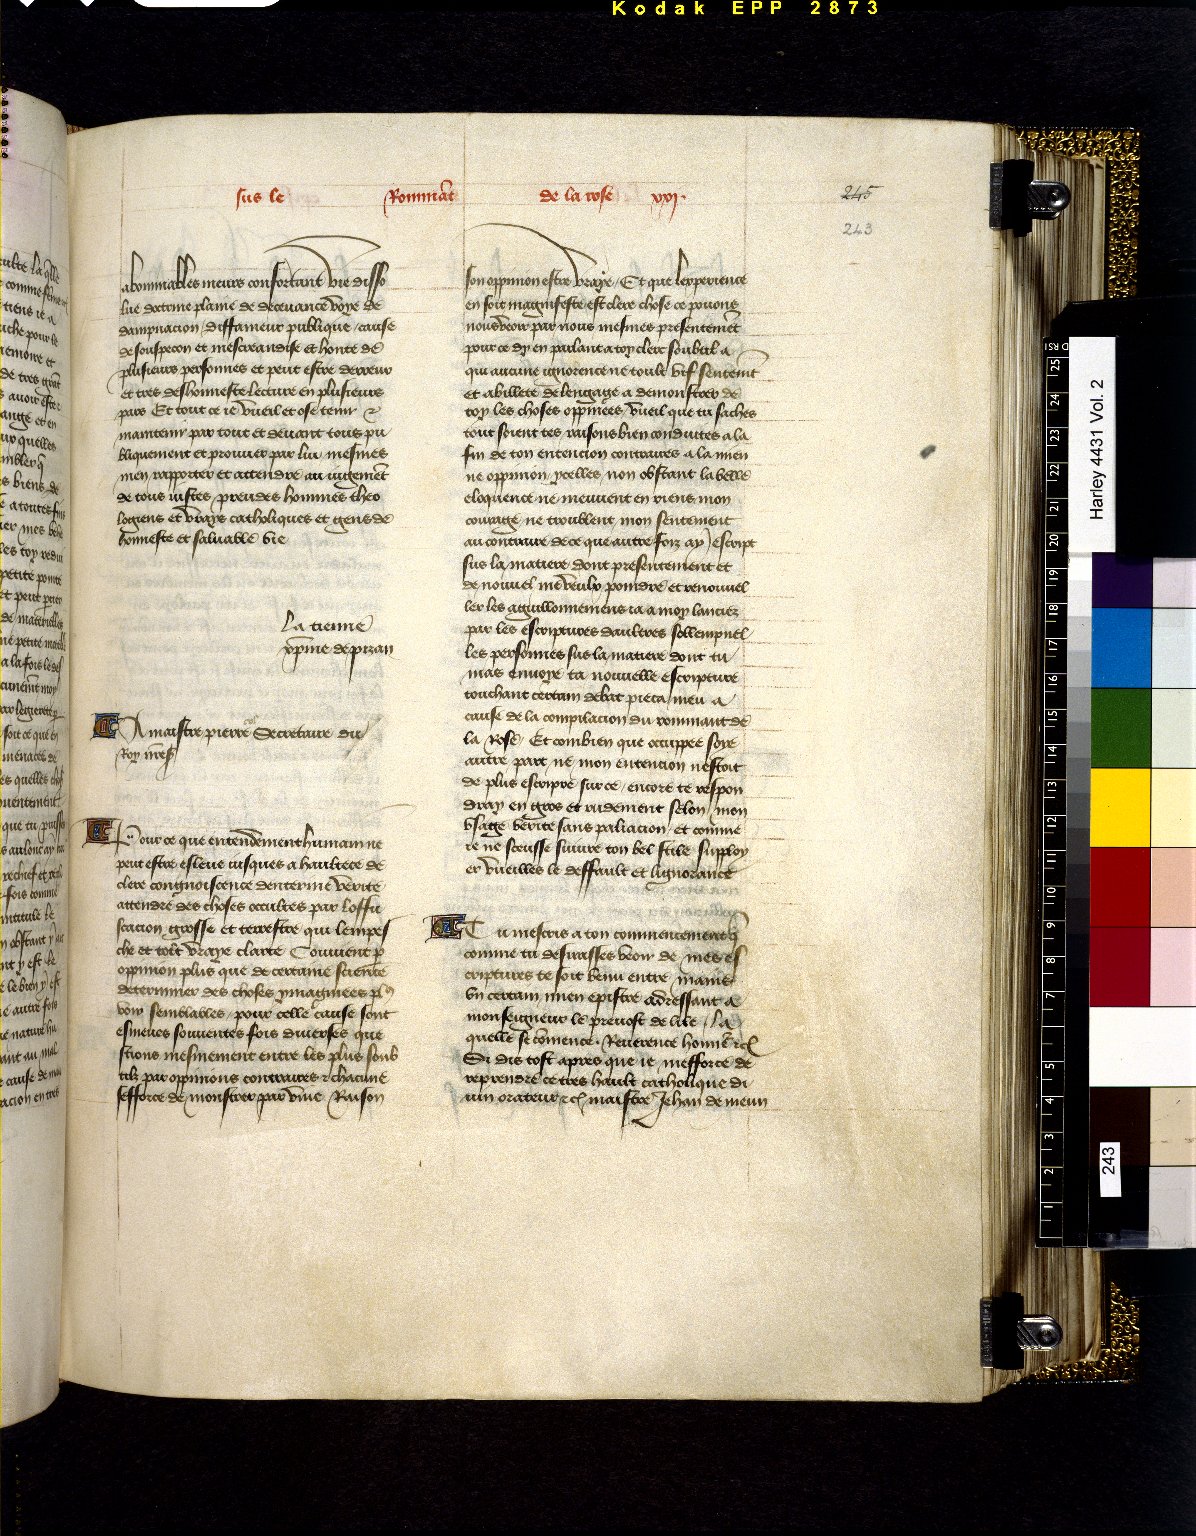 Kodak EPP 2873
sus le Rommāt de la rose xxj.
245
243
abominables meurs confortant vie disso
lue doctrine plaine de deceuance voye de
dampnacion diffameur publique cause
de souspecon et mescreandise et honte de
plusieurs personnes et peut estre derreur
et tres deshonneste lecture en plusieurs
pars Et tout ce ie vueil et ose tenir ⁊
maintenir par tout et deuant tous pu
bliquement et prouuer par lui mesmes
men rapporter et attendre au iugemēt
de tous iustes preudes hommes theo
logiens et vrays catholiques et gens de
honneste et saluable vie
La tienne
xp̄ine de pizan
A maistre pierre col Secretaire du
Roy nr̄e sr̄
Pour ce que entendement humain ne
peut estre esleue iusques a haultece de
clere congnoiscence denterine verite
attendre des choses occultes par loffu
scacion grosse et terrestre qui lempes
che et tolt vraye clarte Conuient p̄
oppinion plus que de certaine science
determiner des choses ymaginees pl9
voir semblables pour celle cause sont
esmeues souuentes fois diuerses que
stions mesmement entre les plus soub
tilz par oppinions contraires ⁊ chacune
sefforce de monstrer par viue Raison
son oppinion estre vraye / Et que lexperience
en soit magnifeste est clere chose ce pouons
nous veoir par nous mesmes presentemēt
pour ce dy en parlant a toy clerc soubtil a
qui aucune ignorence ne toult vif sentemēt
et abillete de lengage a demonstrer de
toy les choses oppinees vueil que tu saches
tout soient tes raisons bien conduites a la
fin de ton entencion contraires a la mien
ne oppinion ycelles non obstant la belle
eloquence ne meuuent en riens mon
courage ne troublent mon sentement
au contraire de ce que autre foiz ay escript
sus la matiere dont presentement et
de nouuel me veulx poindre et renouuel
ler les aguillonnemens ia a moy lanciez
par les escriptures daultres sollempnel
les personnes sus la matiere dont tu
mas enuoye ta nouuelle escripture
touchant certain debat pieca meu a
cause de la compilacion du rommant de
la Rose Et combien que occuppee soye
autre part ne mon entencion nestoit
de plus escripre sur ce / encore te respon
dray en gros et rudement selon mon
vsage verite sans paliacion et comme
ie ne sceusse suiure ton bel stile supploy
er vueilles le deffault et lignorance
Tu mescris a ton commencement q̄
comme tu desirasses veoir de mes es
criptures te soit venu entre mains
vn certain mien epistre adressant a
monseigneur le preuost de lile la
quelle se cōmence. Reuerence honneˢ ⁊c̄
Si dis tost apres que ie mefforce de
reprendre ce tres hault catholique di
uin orateur ⁊c̄ maistre Jehan de meun
Harley 4431 Vol. 2
243
25
24
23
22
21
20
19
18
17
16
15
14
13
12
11
10
9
8
7
5
4
3
2
1